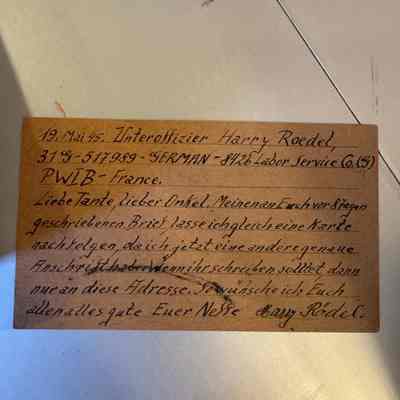 19. Mai 45. Unteroffizier Harry Roedel,
31G-517989-GERMAN-8426 Labor Service Co.(S)
PWIB-France.
Liebe Tante, lieber Onkel. Meinen an Euch vor 8 Tagen
geschriebenen Brief, lasse ich gleich eine Karte
nachfolgen, da ich jetzt eine andere genaue
Anschrift habe. Wenn ihr schreiben solltet dann
nur an diese Adresse. So wünsche ich Euch
allen alles gute Euer Neffe Harry Rödel.